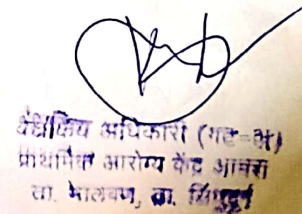 वैद्यकिय अधिकारी (गट-अ)
प्राथमिक आरोग्य केंद्र आचरा
ता. मालवण, जि. सिंधुदुर्ग